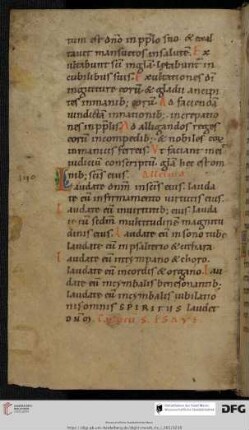 tum est dño in pplo suo & exal
tauit mansuetos in salute. Ex
ultabunt sci in gła. lętabunt in
cubilibus suis. Exultationes dī
in gutture eorū & gladii ancipi
tes in manib; eorū. Ad faciendā
uindictā in nationib; increpatio
nes in pplis. Ad alligandos reges
eorū in compedib; & nobiles eoꝝ
in manicis ferreis. Ut faciant in eis
iudiciū conscriptū. gła hęc est om
nib; scis eius. Alleluia
Laudate dnm in scis eius. lauda
te eū in firmamento uirtutis eius.
Laudate eū in uirtutib; eius. lauda
te eū scdm multitudinē magnitu
dinis eius. Laudate eū in sono tubę
laudate eū in psalterio & cithara
Laudate eū in tympano & choro.
laudate eū in cordis & organo. Lau
date eū in cymbalis benesonantib;
laudate eū in cymbalis iubilatio
nis omnis SPIRITUS laudet
DFG